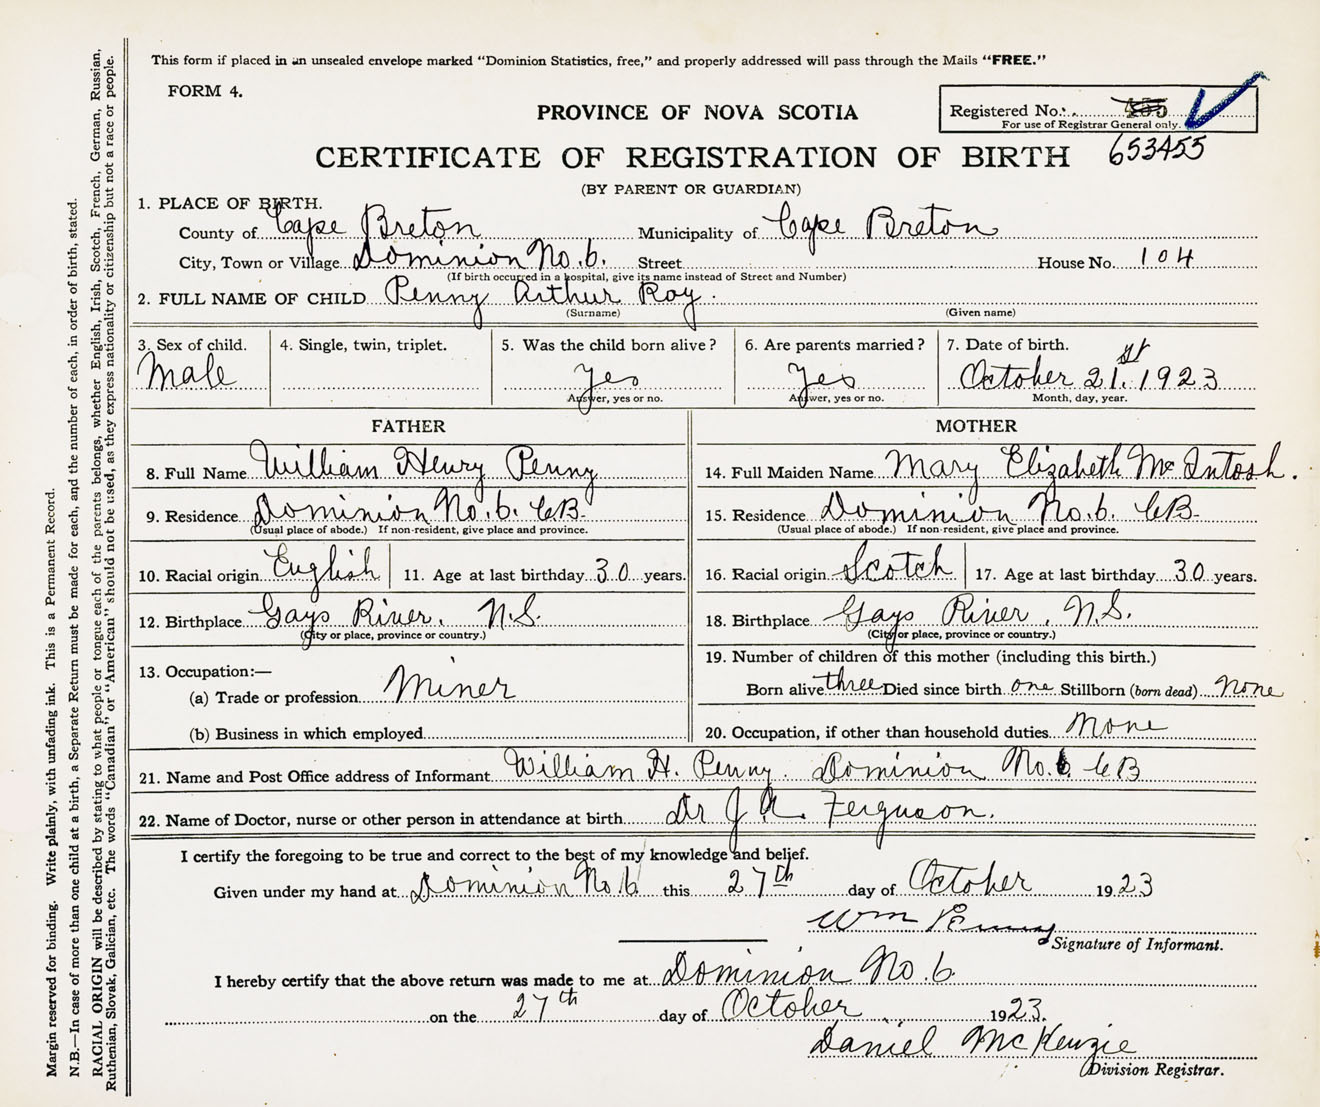 This form if placed in an unsealed envelope marked "Dominion Statistics, free," and properly addressed will pass through the Mails "FREE."
FORM 4.
PROVINCE OF NOVA SCOTIA
Registered No.
For use of Registrar General only.
653455
CERTIFICATE OF REGISTRATION OF BIRTH
(BY PARENT OR GUARDIAN)
1. PLACE OF BIRTH.
County of Cape Breton Municipality of Cape Breton
City, Town or Village Dominion No. 6. Street House No. 104
(If birth occurred in a hospital, give its name instead of Street and Number)
2. FULL NAME OF CHILD Penny Arthur Roy.
(Surname) (Given name)
3. Sex of child. 4. Single, twin, triplet. 5. Was the child born alive? 6. Are parents married? 7. Date of birth.
Male Yes Yes October 21st. 1923
Answer, yes or no. Answer, yes or no. Month, day, year.
FATHER MOTHER
8. Full Name William Henry Penny 14. Full Maiden Name Mary Elizabeth McIntosh.
9. Residence Dominion No. 6. CB. 15. Residence Dominion No. 6. CB.
(Usual place of abode.) If non-resident, give place and province. (Usual place of abode.) If non-resident, give place and province.
10. Racial origin English 11. Age at last birthday 30 years. 16. Racial origin Scotch 17. Age at last birthday 30 years.
12. Birthplace Gays River, N.S. 18. Birthplace Gays River, N.S.
(City or place, province or country.) (City or place, province or country.)
13. Occupation:— 19. Number of children of this mother (including this birth.)
(a) Trade or profession Miner Born alive three Died since birth one Stillborn (born dead) None
(b) Business in which employed 20. Occupation, if other than household duties None
21. Name and Post Office address of Informant William H. Penny. Dominion No. 6 CB
22. Name of Doctor, nurse or other person in attendance at birth Dr J. A. Ferguson.
I certify the foregoing to be true and correct to the best of my knowledge and belief.
Given under my hand at Dominion No 6 this 27th day of October 1923
Wm Penny
Signature of Informant.
I hereby certify that the above return was made to me at Dominion No. 6
on the 27th day of October 1923.
Daniel McKenzie
Division Registrar.
Margin reserved for binding. Write plainly, with unfading ink. This is a Permanent Record.
N.B.—In case of more than one child at a birth, a Separate Return must be made for each, and the number of each, in order of birth, stated.
RACIAL ORIGIN will be described by stating to what people or tongue each of the parents belongs, whether English, Irish, Scotch, French, German, Russian,
Ruthenian, Slovak, Galician, etc. The words "Canadian" or "American" should not be used, as they express nationality or citizenship but not a race or people.